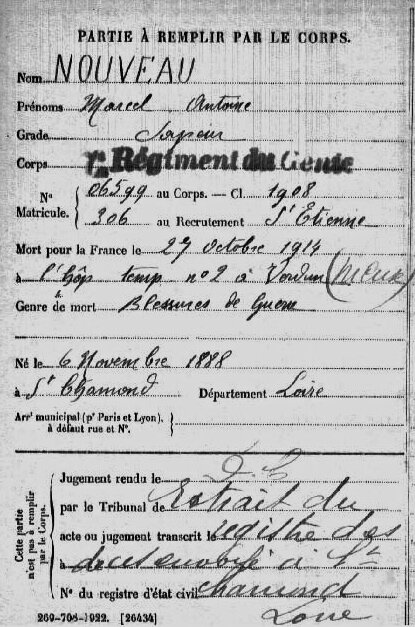 PARTIE À REMPLIR PAR LE CORPS.
Nom NOUVEAU
Prénoms Marcel Antoine
Grade Sapeur
Corps Régiment du Génie
No 06599 au Corps. — Cl. 1908
Matricule. 306 au Recrutement St Etienne
Mort pour la France le 27 Octobre 1914
à l'hôp temp no 2 à Verdun (Meuse)
Genre de mort Blessures de Guerre
Né le 6 Novembre 1888
à St Chamond Département Loire
Arrt municipal (pr Paris et Lyon), à défaut rue et No.
Cette partie n'est pas à remplir par le Corps.
Jugement rendu le
par le Tribunal de Extrait du
acte ou jugement transcrit le registre des
à décès à St
No du registre d'état civil Chamond
Loire
269-708-1922. [26434]